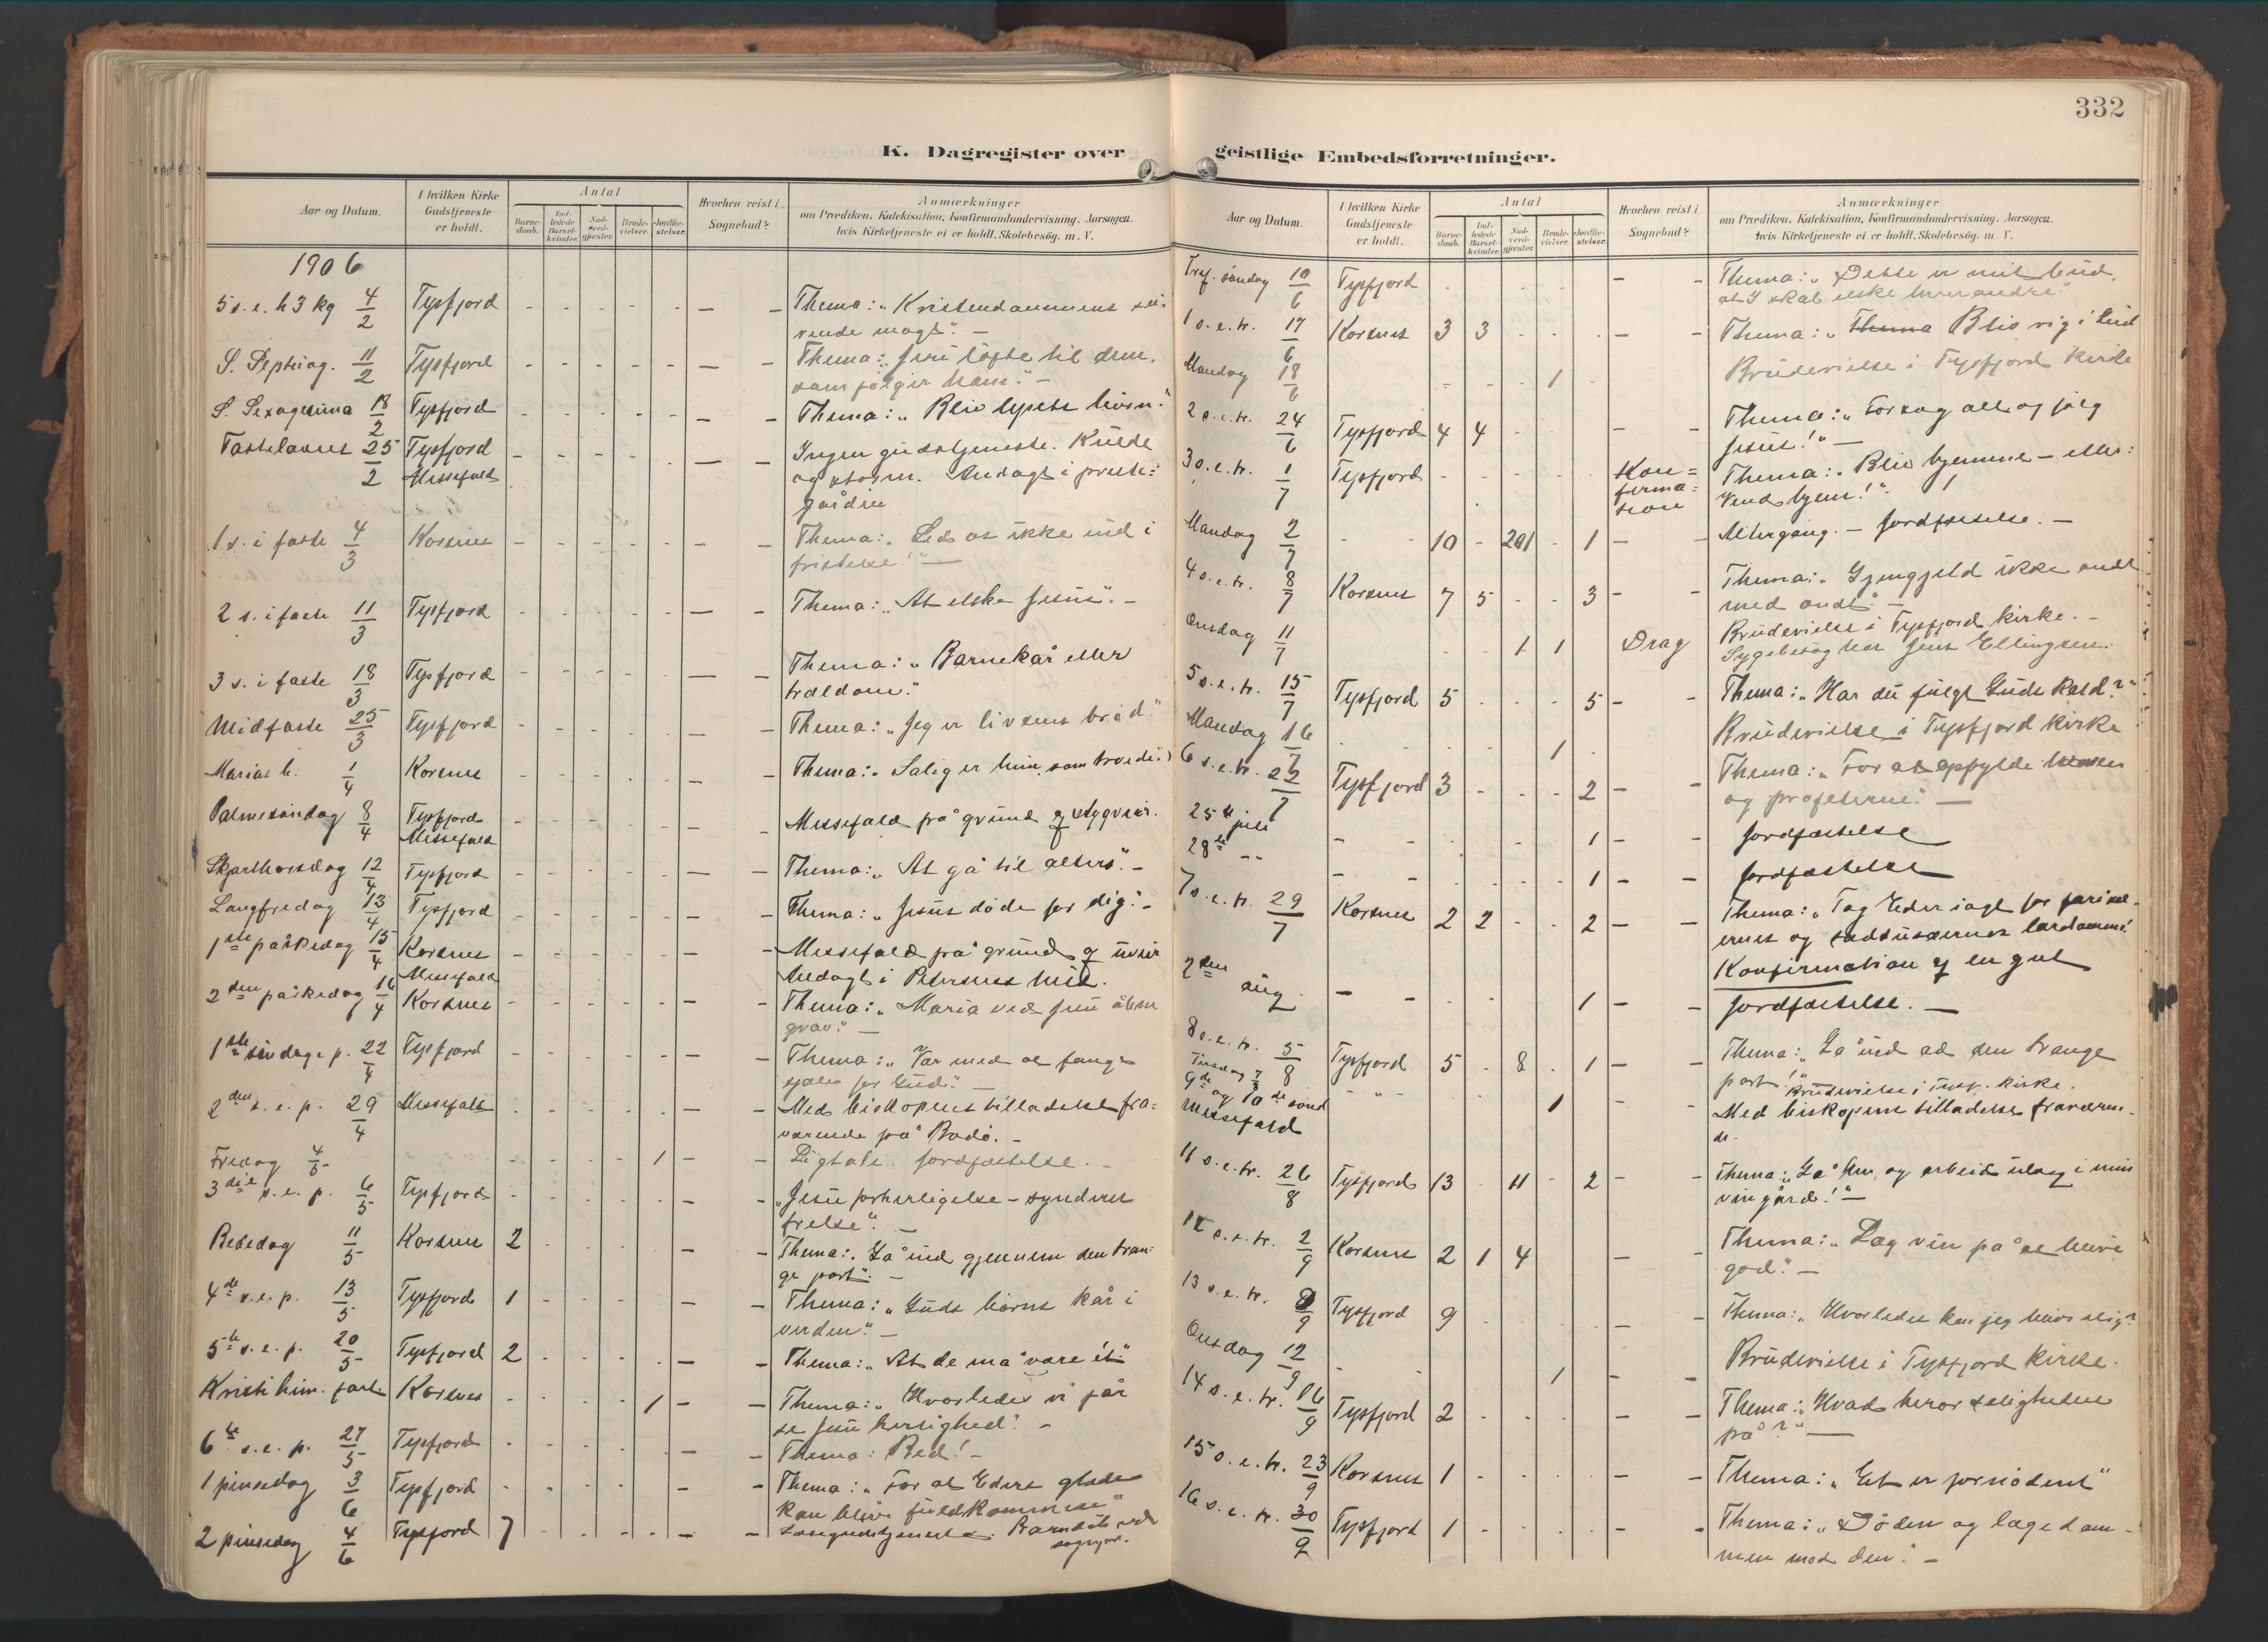 332
K. Dagregister over geistlige Embedsforretninger.
Aar og Datum. I hvilken Kirke Gudstjeneste er holdt. Antal Barnedaab. Indledede Barselkvinder. Nadverdgjæster. Brudevielser. Jordfæstelser. Hvorhen reist i Sognebud? Anmærkninger om Prædiken, Katekisation, Konfirmandundervisning, Aarsagen, hvis Kirketjeneste ei er holdt, Skolebesög, m. V.
1906
5 s. e. h 3 kg 4/2 Tysfjord - - - - - - - Thema: „Kristendommens
vende magt". -
S. Septuag. 11/2 Tysfjord - - - - - - - Thema: „Jesu löfte til dem,
som følger ham." -
S. Sexagesima 18/2 Tysfjord - - - - - - - Thema: „Bliv lysets börn."
Fastelavns 25/2 Tysfjord Messefald - - - - - - - Ingen gudstjeneste. Kulde
og storm. Andagt i preste-
gården
1 s. i faste 4/3 Korsnes - - - - - - - Thema: „Led os ikke ind i
fristelse!" -
2 s. i faste 11/3 Tysfjord - - - - - - - Thema: „At elske Jesus". -
3 s. i faste 18/3 Tysfjord - - - - - - - Thema: „Barnekår eller
trældom."
Midfaste 25/3 Tysfjord - - - - - - - Thema: „Jeg er livsens bröd."
Marias b. 1/4 Korsnes - - - - - - - Thema: „Salig er hun, som troede."
Palmesöndag 8/4 Tysfjord Messefald - - - - - - - Messefald på grund af stygveir.
Skjærthorsdag 12/4 Tysfjord - - - - - - - Thema: „At gå til alters". -
Langfredag 13/4 Tysfjord - - - - - - - Thema: „Jesus döde for dig". -
1ste påskedag 15/4 Korsnes Messefald - - - - - - Messefald på grund af uveir
Andagt i Petersens hus.
2den påskedag 16/4 Korsnes - - - - - - - Thema: „Maria ved Jesu åbne
grav." -
1ste söndag e. p. 22/4 Tysfjord - - - - - - - Thema: „Vær med at fange
sjæle for Gud". -
2den s. e. p. 29/4 Messefald - - - - - - - Med biskopens tilladelse fra-
værende på Bodö. -
Fredag 4/5 - - - - 1 - - Ligtale. Jordfæstelse. -
3die s. e. p. 6/5 Tysfjord - - - - - - - „Jesu forherligelse - synderes
frelse". -
Bededag 11/5 Korsnes 2 - - Thema: „Gå ind gjennem den tran-
ge port". -
4de s. e. p. 13/5 Tysfjord 1 - - - - - - Thema: „Guds börns kår i
verden". -
5te s. e. p. 20/5 Tysfjord 2 - - - - - - Thema: „At de må være ét."
Kristi him. fart Korsnes - - - - 1 - - Thema: „Hvorledes vi får
se Jesu herlighed". -
6te s. e. p. 27/5 Tysfjord - - - - - - - Thema: Bed! -
1 pinsedag 3/6 Tysfjord - - - - - - - Thema: „For at Eders glæde
kan blive fuldkommen"
2 pinsedag 4/6 Tysfjord 7 - - - - - - Barndåb ved
sognepr.
Aar og Datum. I hvilken Kirke Gudstjeneste er holdt. Antal Barnedaab. Indledede Barselkvinder. Nadverdgjæster. Brudevielser. Jordfæstelser. Hvorhen reist i Sognebud? Anmærkninger om Prædiken, Katekisation, Konfirmandundervisning, Aarsagen, hvis Kirketjeneste ei er holdt, Skolebesög, m. V.
Tref. söndag 10/6 Tysfjord - - - - - - - Thema: „Dette er mit bud,
at I skal elske hverandre."
1 s. e. tr. 17/6 Korsnes 3 3 - - - - - Thema: „Thema Bliv rig i Gud
Mandag 18/6 - - - 1 - Brudevielse i Tysfjord kirke
2 s. e. tr. 24/6 Tysfjord 4 4 - - - - Thema: „Forsag alt og følg
Jesus!" -
3 s. e. tr. 1/7 Tysfjord - - - - - Kon-
firma-
sion Thema: „Bliv hjemme - eller:
Vend hjem!"
Mandag 2/7 - - 10 - 201 - 1 - - Altergang. - Jordfæstelse. -
4 s. e. tr. 8/7 Korsnes 7 5 - - 3 - - Thema: „Gjengjeld ikke ondt
med ondt". -
Onsdag 11/7 - - 1 1 Drag Brudevielse i Tysfjord kirke. -
Sygebesög hos Jens Ellingsen.
5 s. e. tr. 15/7 Tysfjord 5 - - - 5 - - Thema: „Har du fulgt Guds kald?"
Mandag 16/7 - - - - 1 - Brudevielse i Tysfjord kirke
6 s. e. tr. 22/7 Tysfjord 3 - - - 2 - - Thema: „For at opfylde loven
og profeterne". -
25de juli - - - - 1 - - Jordfæstelse
28de - - - - - - 1 - - Jordfæstelse
7 s. e. tr. 29/7 Korsnes 2 2 - - 2 - - Thema: „Tag Eder iagt for farisæ-
ernes og saddusæernes lærdomme".
Konfirmation af en gut
2den aug. - - - - 1 - - Jordfæstelse. -
8 s. e. tr. 5/8 Tysfjord 5 - 8 - 1 - - Thema: „Gå ind ad den trange
port!"
Tirsdag 7/8 - " - 1 - - Brudevielse i Tysf. kirke.
9de og 10de sönd Messefald Med biskopens tilladelse fraværen-
de.
11 s. e. tr. 26/8 Tysfjord 13 - 11 - 2 - - Thema: „Gå hen og arbeid idag i min
vingård!" -
12 s. e. tr. 2/9 Korsnes 2 1 4 - - Thema: „Læg vin på at blive
god". -
13 s. e. tr. 9/9 Tysfjord 9 - - - - - - Thema: „Hvorledes kan jeg blive salig?
Onsdag 12/9 - - - 1 - - Brudevielse i Tysfjord kirke.
14 s. e. tr. 16/9 Tysfjord 2 - - - - - - Thema: „Hvad beror saligheden
på?" -
15 s. e. tr. 23/9 Korsnes 1 - - - - - - Thema: „Et er fornödent"
16 s. e. tr. 30/9 Tysfjord 1 - - - - - - Thema: „Döden og lægedom-
men mod den". -